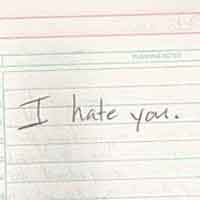 I hate you.